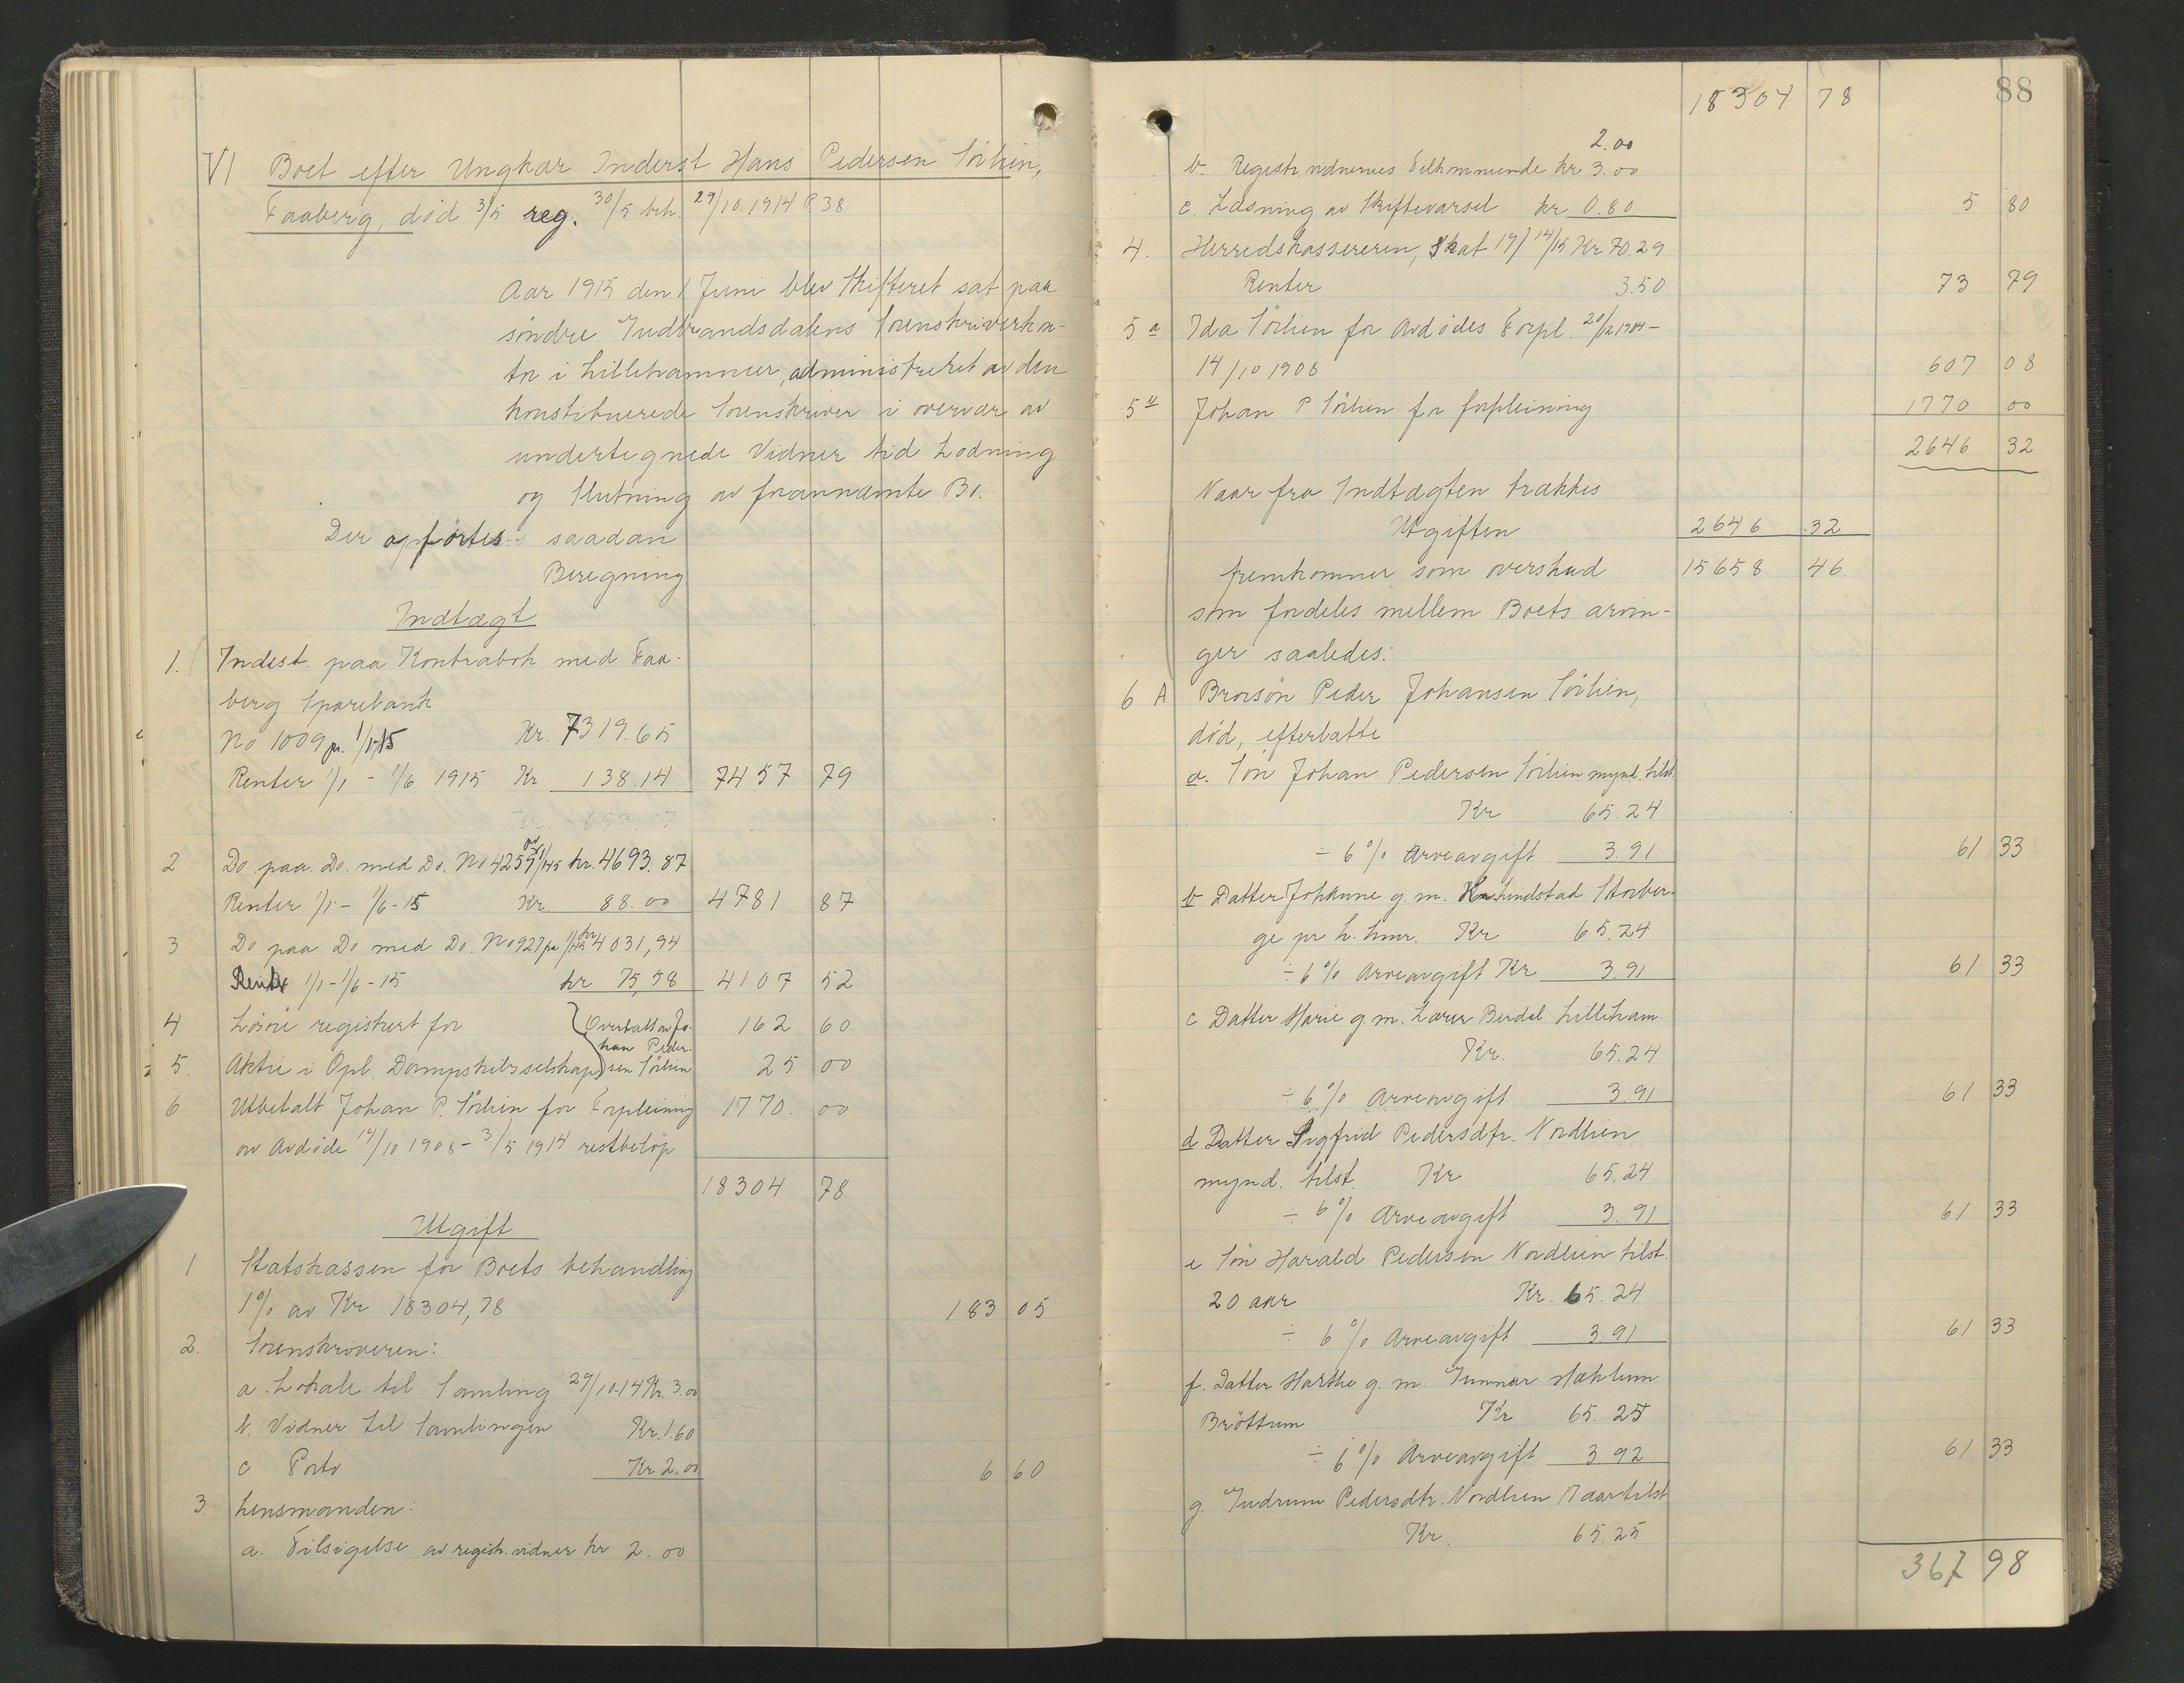 VI Boet efter Ungkar Inderst Hans Pedersen Sörlien,
Faaberg, död 3/5 reg. 30/5 beh. 29/10.1914 P 38
Aar 1915 den 1 Juni blev Skifteret sat paa
söndre Gudbrandsdalens Sorenskriverkon-
tor i Lillehammer, administreret av den
konstituerede Sorenskriver i overvær av
undertegnede Vidner tid Lodning
og Slutning av forannævnte Bo.
Der opförtes saadan
Beregning
Indtægt
1. Indest. paa Kontrabok med Faa-
berg Sparebank
No 1009 pr. 1/1-15 Kr. 7319.65
Renter 1/1 - 1/6 1915 Kr 138.14 7457 79
2 Do paa Do. med Do. No 4259 1/1-15 kr. 4693.87
Renter 1/1 - 1/6-15 Kr. 88.00 4781 87
3 Do paa Do med Do. No 927 pr 1/1-15 kr 4031,94
Renter 1/1-1/6-15 kr 75,58 4107 52
4 Lösöre registrert for } Overtatt av Jo- 162 60
han Peder-
5. Aktie i Opl. Dampskibsselskap } sen Sörlien 25 00
6 Utbetalt Johan P. Sörlien for Forpleining 1770. 00
av Avdöde 14/10 1908 - 3/5 1914 restbelöp
18304 78
Utgift
1 Statskassen for Boets behandling
1% av Kr 18304,78 183 05
2. Sorenskriveren:
a. Lokale til Samling 29/10-14 Kr. 3.00
b. Vidner til Samlingen Kr. 1.60
c Porto Kr 2.00 6 60
3. Lensmanden:
a. Tilsigelse av registr. vidner kr 2.00
88
18304 78
2.00
b. Registr. vidnernes Tilkommende kr 3.00
c. Læsning av Skiftevarsel kr 0.80 5 80
4. Herredskassereren, Skat 19 14/15 Kr 70.29
Renter 3.50 73 79
5 a Ida Sörlien for Avdödes Forpl. 20/12 1904 -
14/10 1908 607 08
5 b Johan P Sörlien for forpleining 1770 00
2646 32
Naar fra Indtægten trækkes
Utgiften 2646 32
fremkommer som overskud 15658 46
som fordeles mellem Boets arvin-
ger saaledes:
6 A Brorsön Peder Johansen Sörlien,
död, efterlatte
a. Sön Johan Pedersen Sörlien mynd. tilst.
Kr 65.24
÷ 6% Arveavgift 3.91 61 33
b Datter Johanne g. m. Lindstad Storber-
ge pr L. hmr. Kr 65.24
÷ 6% Arveavgift Kr 3.91 61 33
c Datter Marie g. m. Lærer Berdal Lilleham.
Kr. 65.24
÷ 6% Arveavgift 3.91 61 33
d Datter Sigfrid Pedersdtr. Nordlien
mynd. tilst. Kr 65.24
÷ 6% Arveavgift 3.91 61 33
e Sön Harald Pedersen Nordlien tilst.
20 aar Kr. 65.24
÷ 6% Arveavgift 3.91 61 33
f. Datter Marthe g. m. Gunnar Mæhlum
Bröttum Kr 65.25
÷ 6% Arveavgift 3 92 61 33
g. Gudrun Pedersdtr. Nordlien 17 aar tilst
Kr. 65.25
367 98